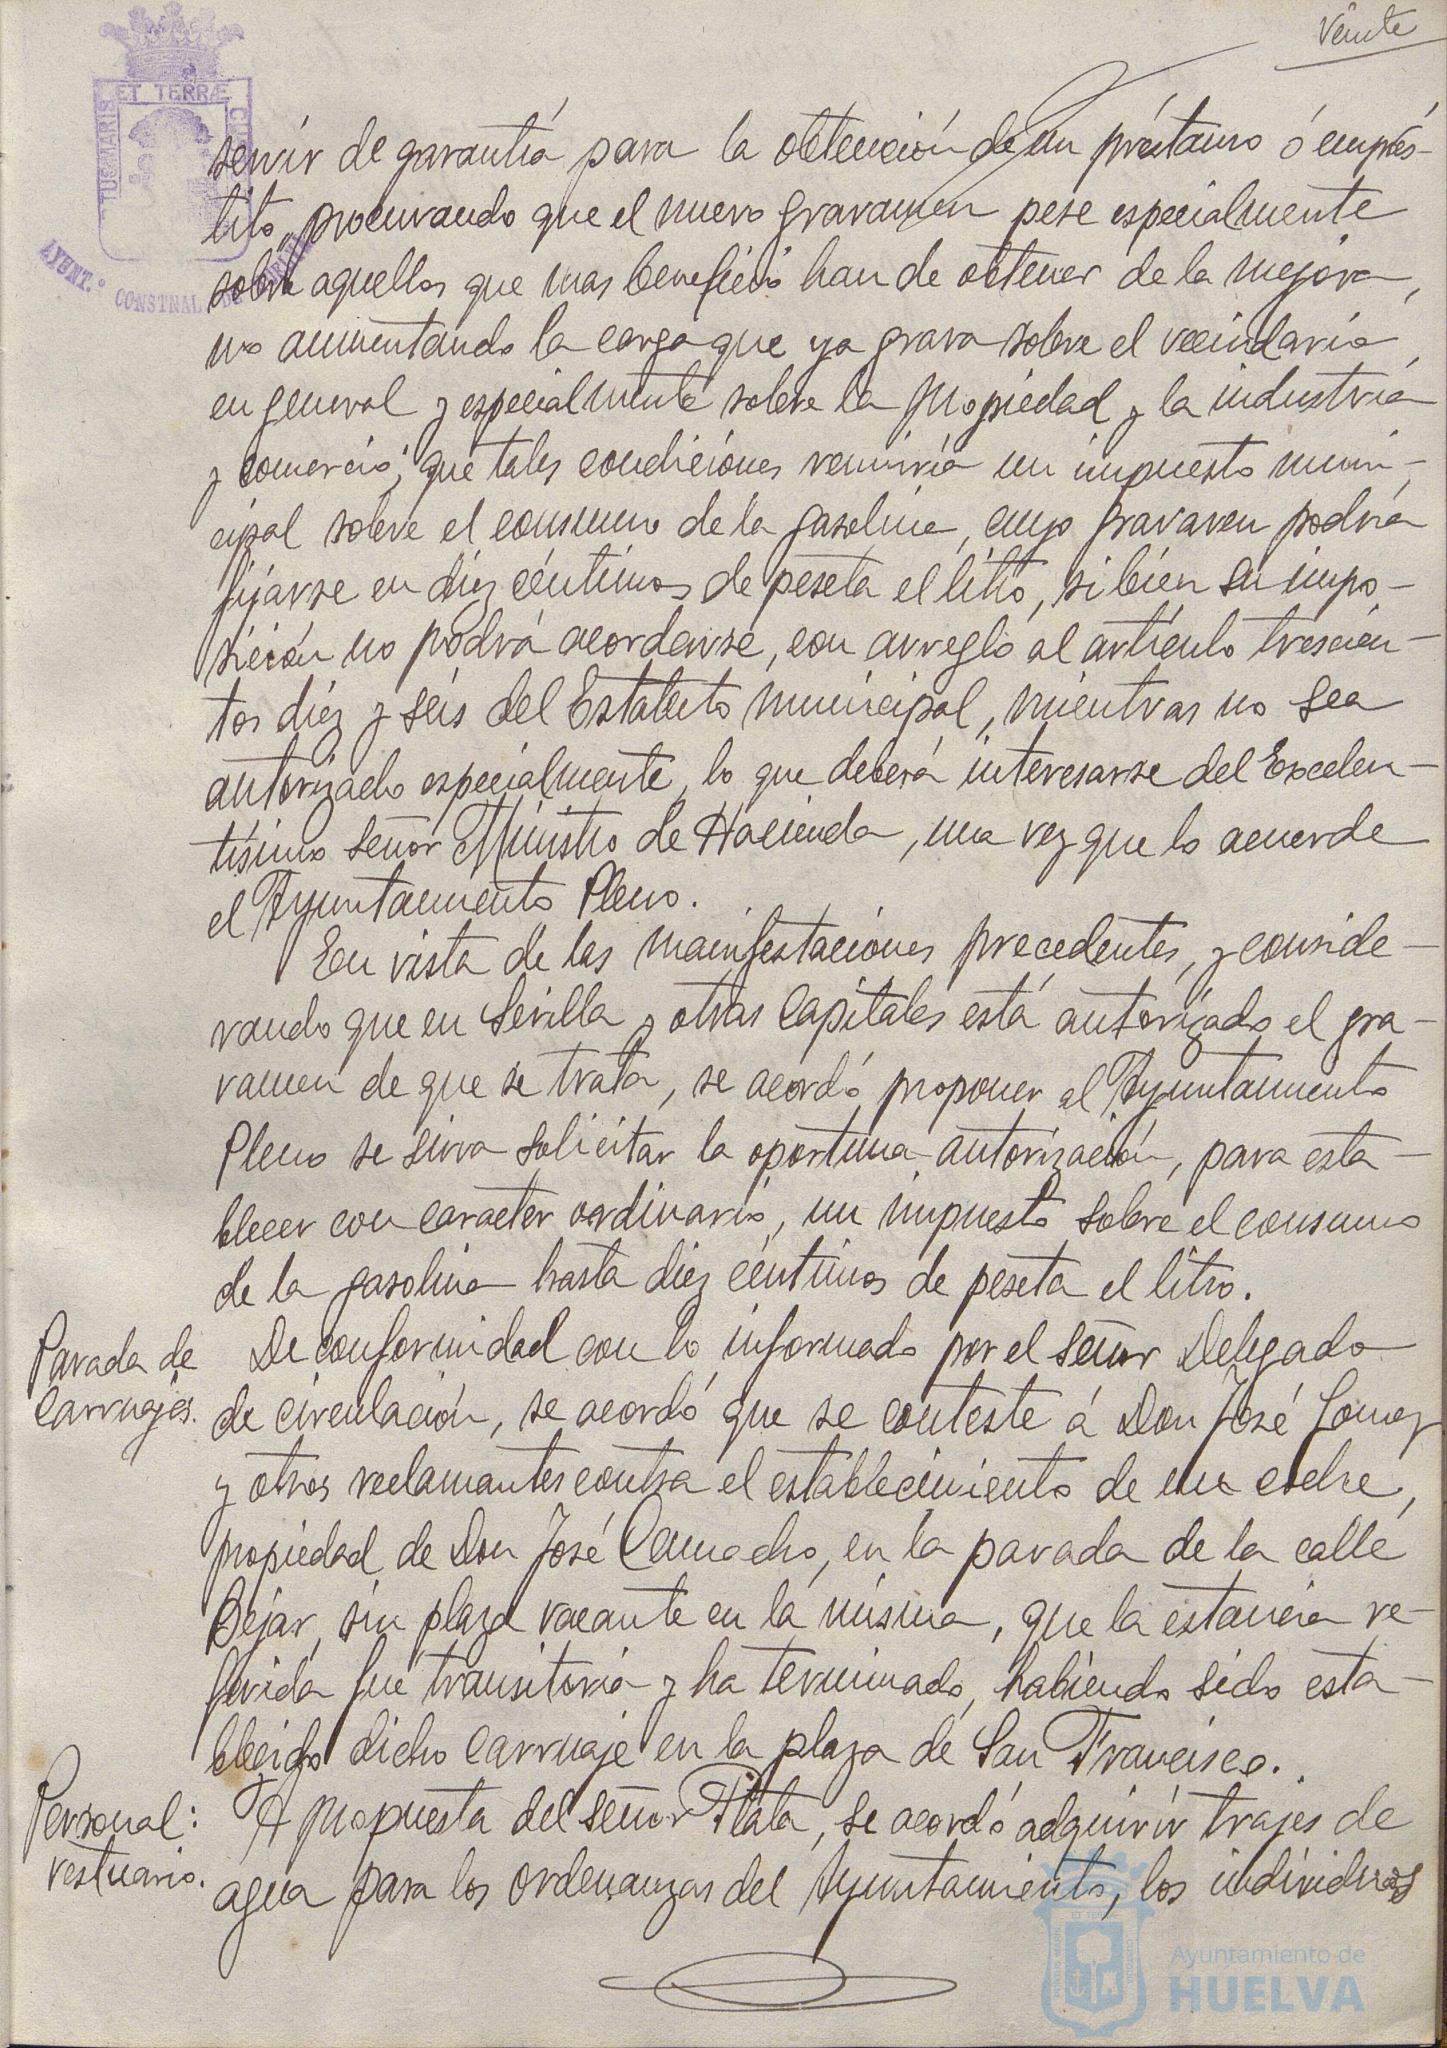 Veinte
ET TERRÆ
TUS MARIS
AYUNT.º CONSTNAL. DE
servir de garantía para la obtención de un préstamo ó emprés-
tito, procurando que el nuevo gravamen pese especialmente
sobre aquellos que mas beneficio han de obtener de la mejora,
no aumentando la carga que ya grava sobre el vecindario
en general y especialmente sobre la propiedad y la industria
y comercio; que tales condiciones reuniría un impuesto muni-
cipal sobre el consumo de la gasolina, cuyo gravaren podría
fijarse en diez céntimos de peseta el litro, si bién su impo-
sición no podrá acordarse, con arreglo al artículo trescien-
tos diez y séis del Estatuto municipal, mientras no sea
autorizado especialmente, lo que deberá interesarse del Excelen-
tísimo señor Ministro de Hacienda, una vez que lo acuerde
el Ayuntamiento Pleno.
En vista de las manifestaciones precedentes, y conside-
rando que en Sevilla y otras capitales está autorizado el gra-
vamen de que se trata, se acordó proponer al Ayuntamiento
Pleno se sirva solicitar la oportuna autorización, para esta-
blecer con caracter ordinario, un impuesto sobre el consumo
de la gasolina hasta diez céntimos de peseta el litro.
Parada de
Carruajes.
De conformidad con lo informado por el señor Delegado
de circulación, se acordó que se conteste á Don José Gomez
y otros reclamantes contra el establecimiento de un coche,
propiedad de Don José Camacho, en la parada de la calle
Bejar, sin plaza vacante en la misma, que la estancia re-
ferida fué transitoria y ha terminado, habiendo sido esta-
blecido dicho carruaje en la plaza de San Francisco.
Personal:
vestuario.
A propuesta del señor Plata, se acordó adquirir trajes de
agua para los ordenanzas del Ayuntamiento, los individuos
Ayuntamiento de
HUELVA